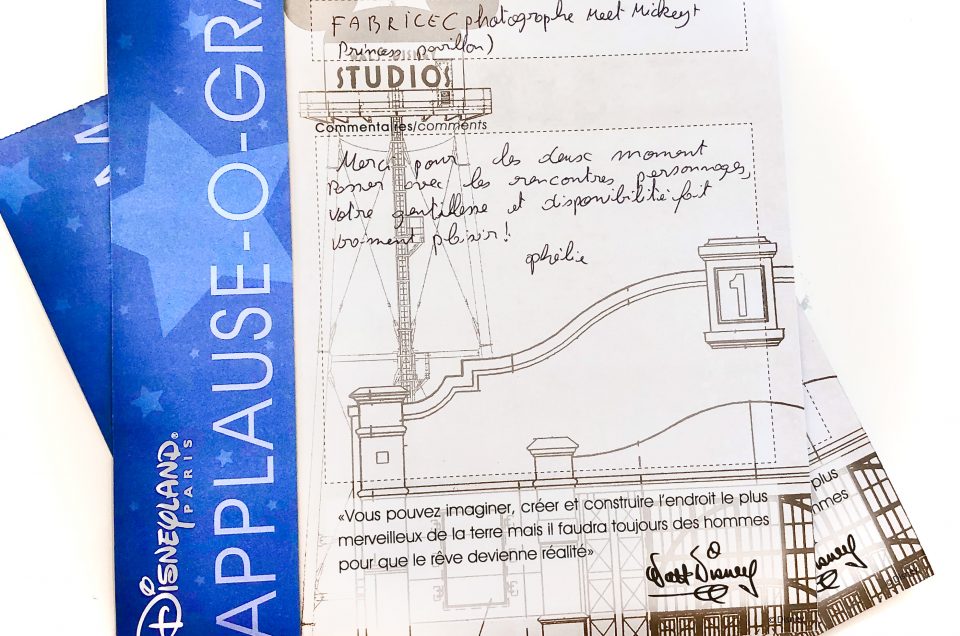 FABRICE (photographe Meet Mickey +
Princess pavillon)
STUDIOS
Commentaires/comments
Merci pour les deux moment
Passer avec les rencontres personnages,
votre gentillesse et disponibilité fait
vraiment plaisir !
ophélie
1
«Vous pouvez imaginer, créer et construire l'endroit le plus
merveilleux de la terre mais il faudra toujours des hommes
pour que le rêve devienne réalité»
Walt Disney
DISNEYLAND®
PARIS
APPLAUSE-O-GRA
plus
mmes
Disney